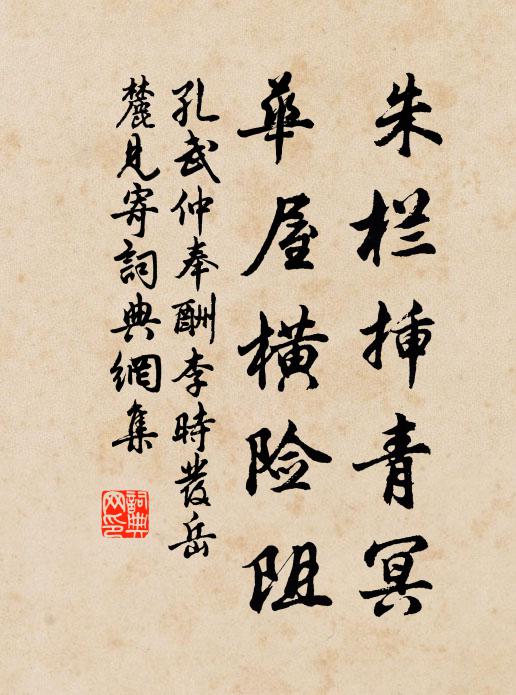 朱栏挿青冥
華屋横险阻
孔武仲奉酬李時發岳
麓見寄詞典網集
詞典
网印